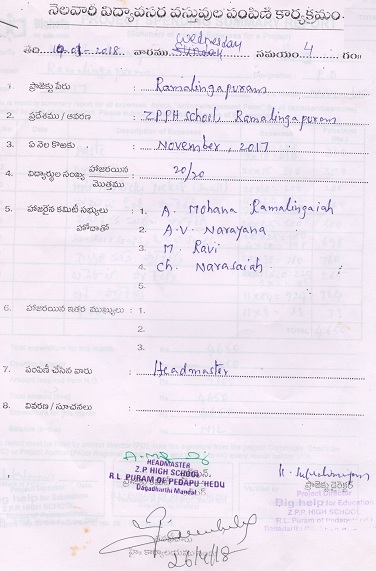 నెలవారి విద్యావసర వస్తువుల పంపిణి కార్యక్రమం.
Wednesday
తేది .01-2018 వారము Sunday సమయం 4 గం॥
1. ప్రాజెక్టు పేరు : Ramalingapuram
2. ప్రదేశము / ఆవరణ : ZPPH School Ramalingapuram
3. ఏ నెల కొఱకు : November, 2017
4. విద్యార్థుల సంఖ్య హాజరయిన / మొత్తము : 20/20
5. హాజరైన కమిటీ సభ్యులు : 1. A. Mohana Ramalingaiah
హోదాతో 2. A.V. Narayana
3. M. Ravi
4. Ch. Narasaiah
5.
6. హాజరయిన ఇతర ముఖ్యులు : 1.
2.
3.
7. పంపిణీ చేసిన వారు : Headmaster
8. వివరణ / సూచనలు :
HEADMASTER
Z.P. HIGH SCHOOL
R.L. PURAM OF PEDAPU HEDU
Dagadharthi Mandal
ప్రాజెక్టు డైరెక్టర్
Project Director
Big help for Education
Z.P.P HIGH SCHOOL
R.L. Puram of
26/4/18